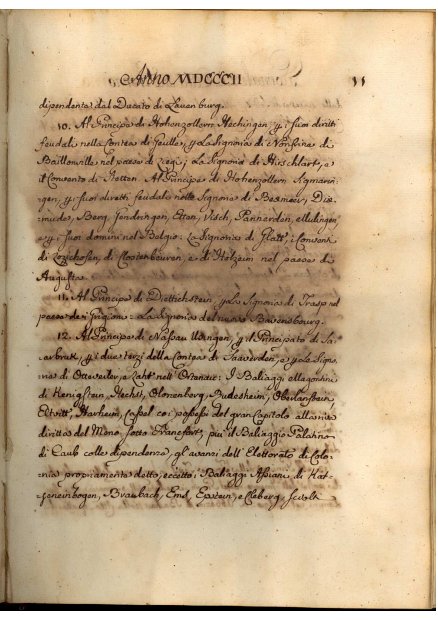 Anno MDCCCII 11
dipendenta dal Ducato di Lauenburg.
10. Al Principe di Hohenzollern Hechingen, p i suoi diritti
feudali nella Contea di Geulle, e p La Signoria di
Baillonville nel paese di Liegi; La Signoria di Hirschlatt, e
il Convento di Stetten. Al Principe di Hohenzollern Sigmarin-
gen, p i suoi diritti feudali nelle Signorie di Boxmeer, Dix-
mude, Berg, Gendringen, Etten, Visch, Pannerden, Mulingen
e p i suoi domini nel Belgio: La Signoria di Glatt, i Conventi
di Inzichofen, di Closterbeuren, e di Holzeim nel paese di
Augusta.
11. Al Principe di Diettichstein, p La Signoria di Trasp nel
paese de' Grigioni: La Signoria del nuovo Ravensbourg.
12. Al Principe di Nassau Usingen, p il Principato di Sa-
arbruk, p i due terzi della Contea di Saaverden, e p La Signo-
ria di Ottweiler, e Lahr nell' Ortenau: I Baliaggi Magontini
di Kenigstein, Hechst, Cronenberg, Budesheim, Oberlanstein
Eltvill, Harheim, Casel coi possessi del gran Capitolo alla riva
diritta del Meno, sotto Francfort; più il Baliaggio Palatino
di Caub colle dipendenze, gl'avanzi dell' Elettorato di Colo-
nia propriamente detto, eccetto: i Baliaggi Assiani di Kat-
zeneinbogen, Braubach, Ems, Epstein, e Cleberg, sciolti